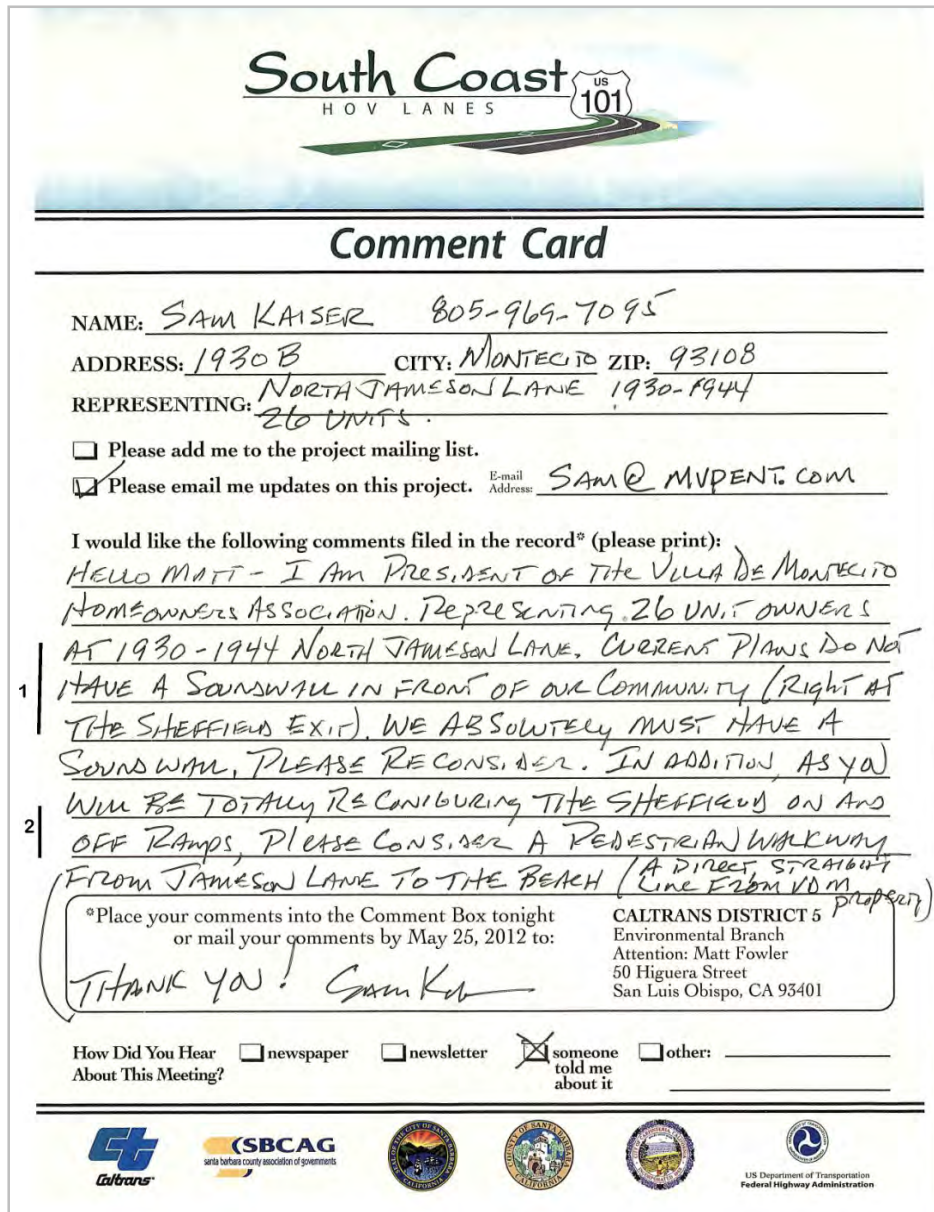 South Coast
HOV LANES
US
101
Comment Card
NAME: SAM KAISER 805-969-7095
ADDRESS: 1930 B CITY: MONTECITO ZIP: 93108
REPRESENTING: NORTH JAMESON LANE 1930-1944
26 UNITS.
Please add me to the project mailing list.
Please email me updates on this project. E-mail Address: SAM@MVPENT.COM
I would like the following comments filed in the record* (please print):
HELLO MATT - I AM PRESIDENT OF THE VILLA DE MONTECITO
HOMEOWNERS ASSOCIATION. REPRESENTING 26 UNIT OWNERS
AT 1930-1944 NORTH JAMESON LANE. CURRENT PLANS DO NOT
1 HAVE A SOUNDWALL IN FRONT OF OUR COMMUNITY (RIGHT AT
THE SHEFFIELD EXIT). WE ABSOLUTELY MUST HAVE A
SOUND WALL, PLEASE RECONSIDER. IN ADDITION, AS YOU
WILL BE TOTALLY RECONIGURING THE SHEFFIELD ON AND
2 OFF RAMPS, PLEASE CONSIDER A PEDESTRIAN WALKWAY
FROM JAMESON LANE TO THE BEACH (A DIRECT, STRAIGHT
LINE FROM VDM PROPERTY)
*Place your comments into the Comment Box tonight
or mail your comments by May 25, 2012 to:
THANK YOU!
CALTRANS DISTRICT 5
Environmental Branch
Attention: Matt Fowler
50 Higuera Street
San Luis Obispo, CA 93401
How Did You Hear About This Meeting? newspaper newsletter someone told me about it other:
Caltrans
SBCAG
santa barbara county association of governments
US Department of Transportation
Federal Highway Administration